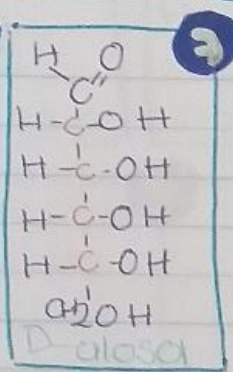 7
H O
C
H-C-OH
H-C-OH
H-C-OH
H-C-OH
CH2OH
D-alosa